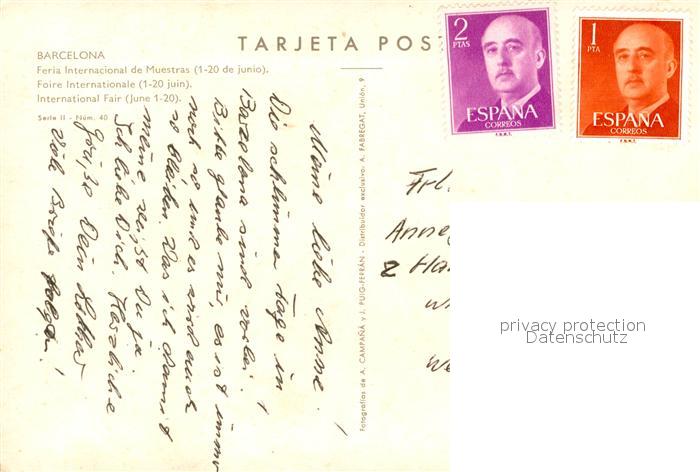 BARCELONA
Feria Internacional de Muestras (1-20 de junio).
Foire Internationale (1-20 juin).
International Fair (June 1-20).
Serie II - Núm. 40
TARJETA POST
2
PTAS
ESPAÑA
CORREOS
F.N.M.T.
1
PTA
ESPAÑA
CORREOS
F.N.M.T.
Fotografías de A. CAMPAÑÁ y J. PUIG-FERRÁN - Distribuidor exclusivo: A. FABREGAT, Unión, 9
Meine liebe Anne!
Die schlimmen Tage in
Barcelona sind vorbei!
Bitte glaube mir, es ist immer
noch so und es wird auch
so bleiben. Was ich damit
meine weißt Du ja.
Ich liebe Dich. Herzliche
Grüße Dein Lothar
Viele Briefe folgen!
Frl.
Anne
z Ha
W
We
privacy protection
Datenschutz